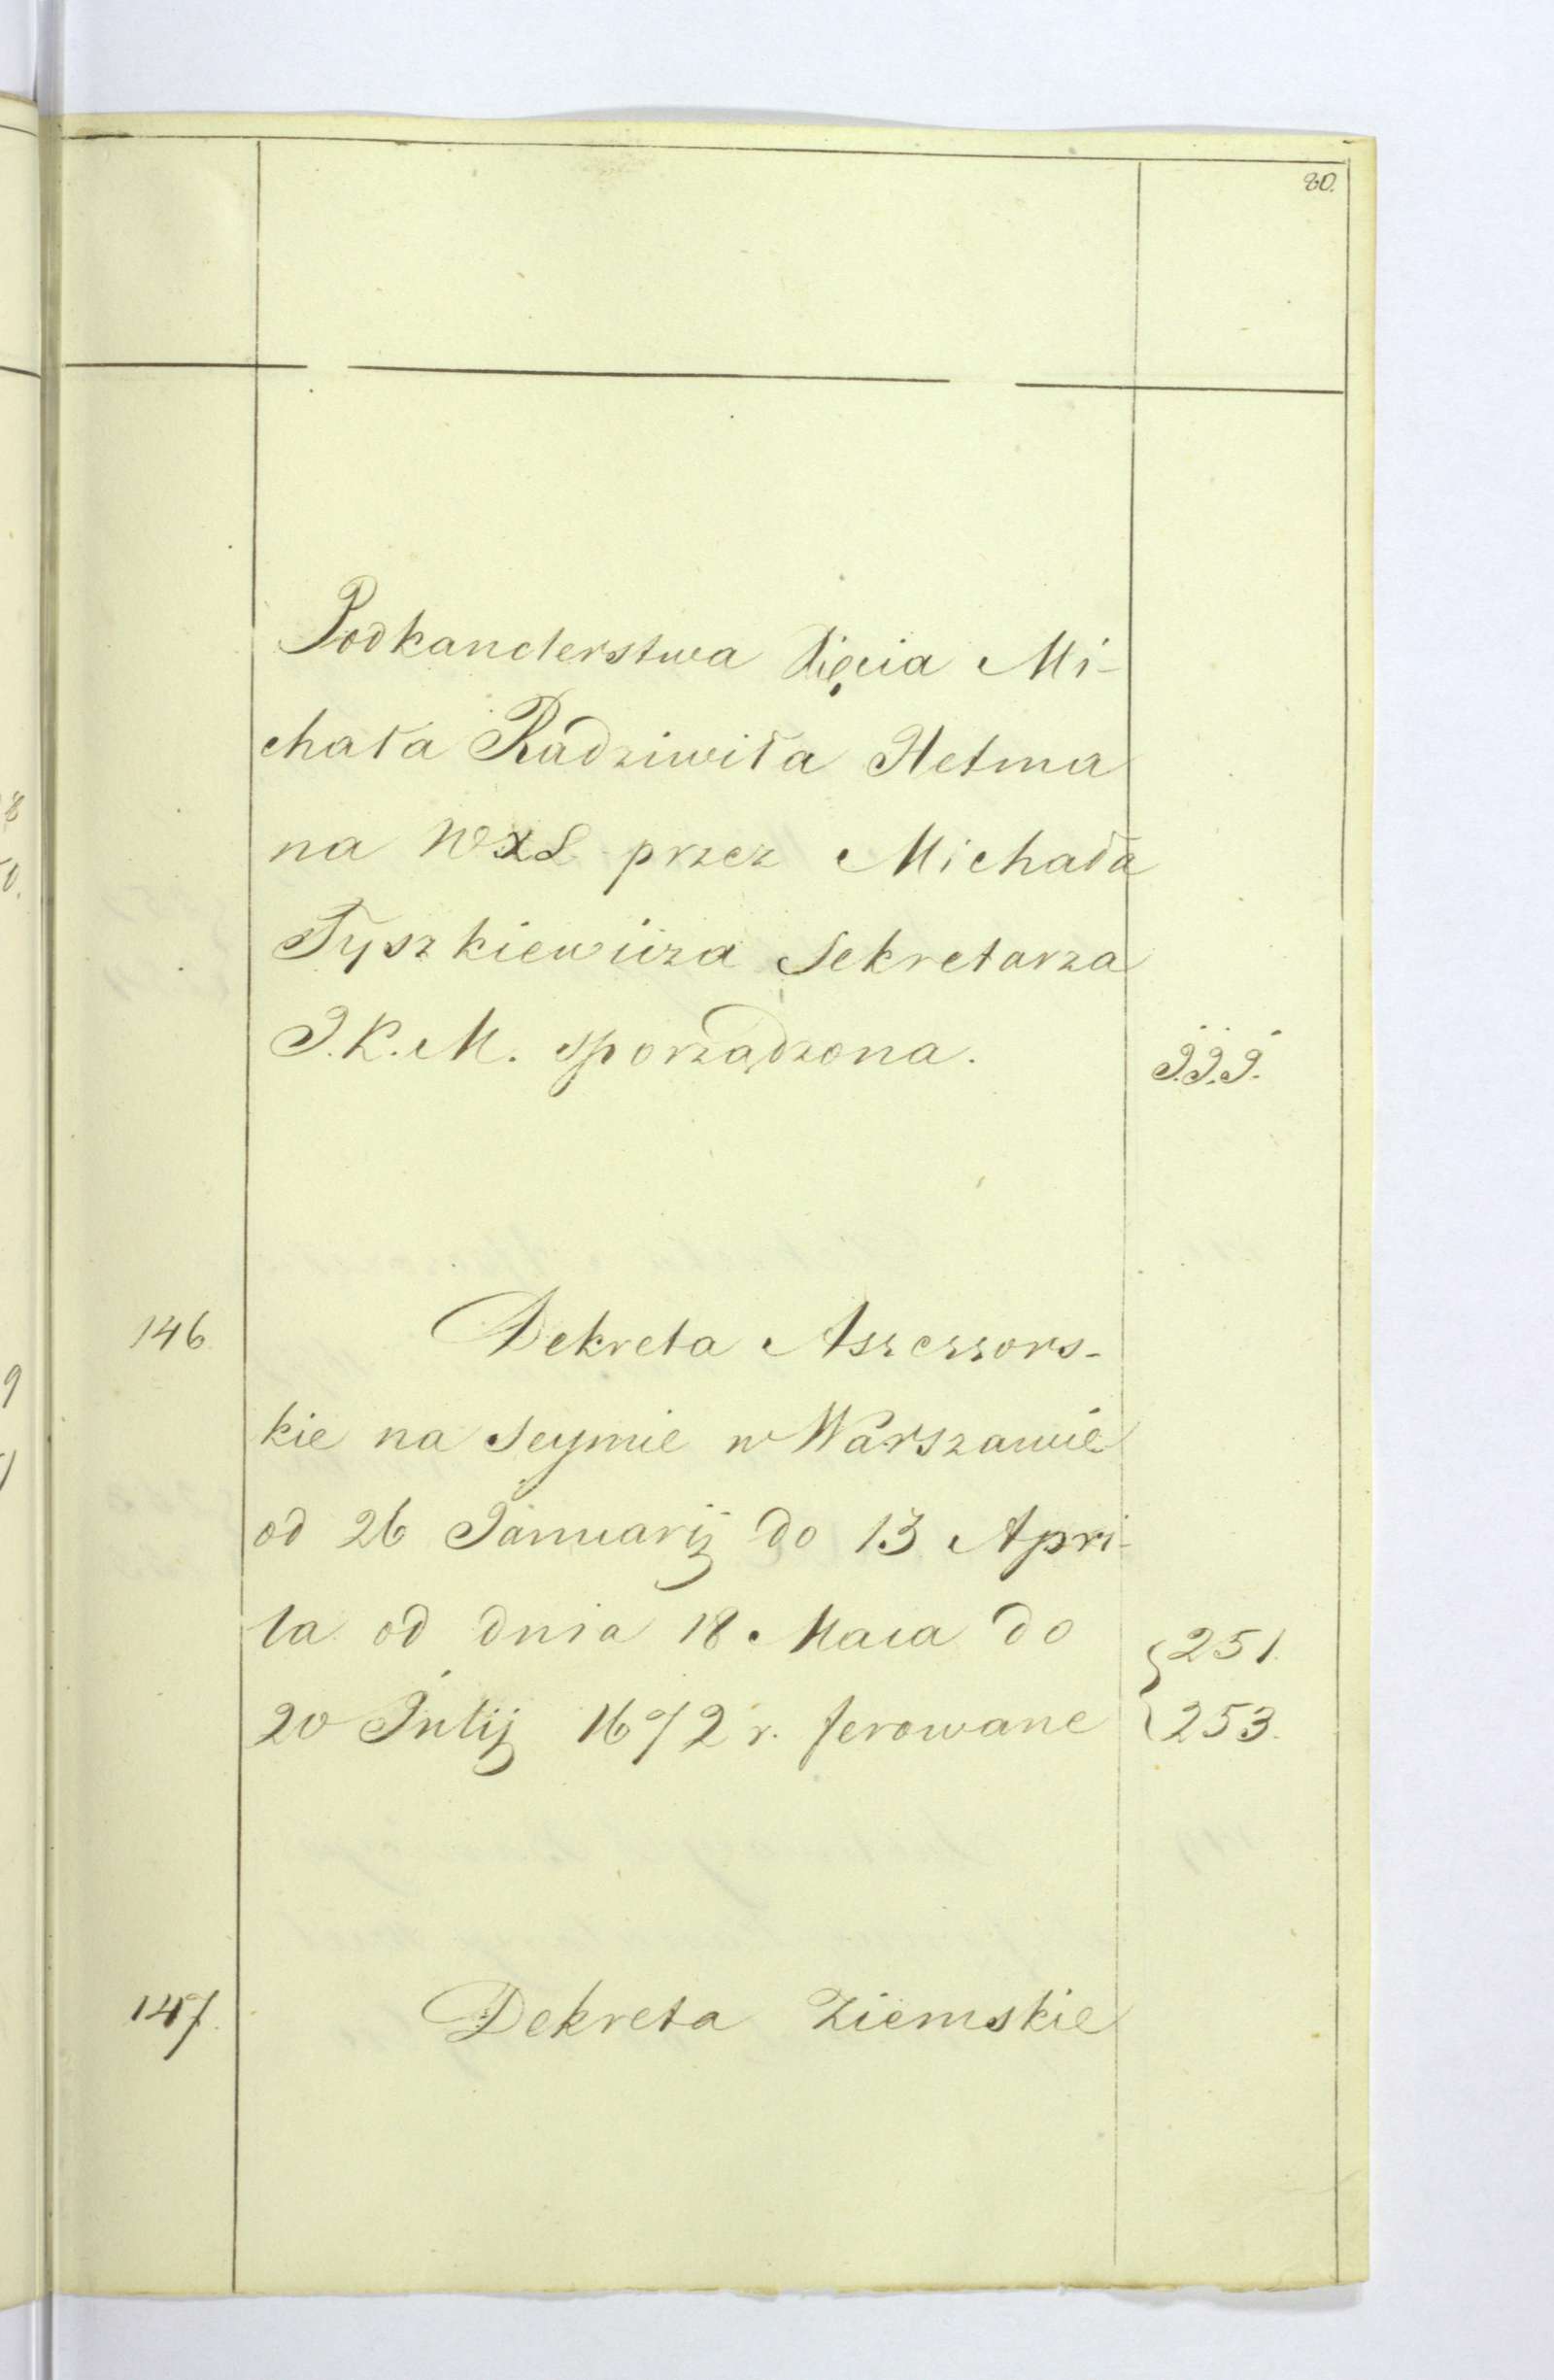 80.
Podkanclerstwa Xięcia Mi-
chała Radziwiła Hetma
na WXL przez Michała
Tyszkiewicza Sekretarza
J.K.M. sporządzona. J.J.J.
146. Dekreta Assessors-
kie na Seymie w Warszawie
od 26 Januarij do 13 Apri-
la od dnia 18 Maia do 251.
20 Julij 1672 r. ferowane 253.
147. Dekreta Ziemskie